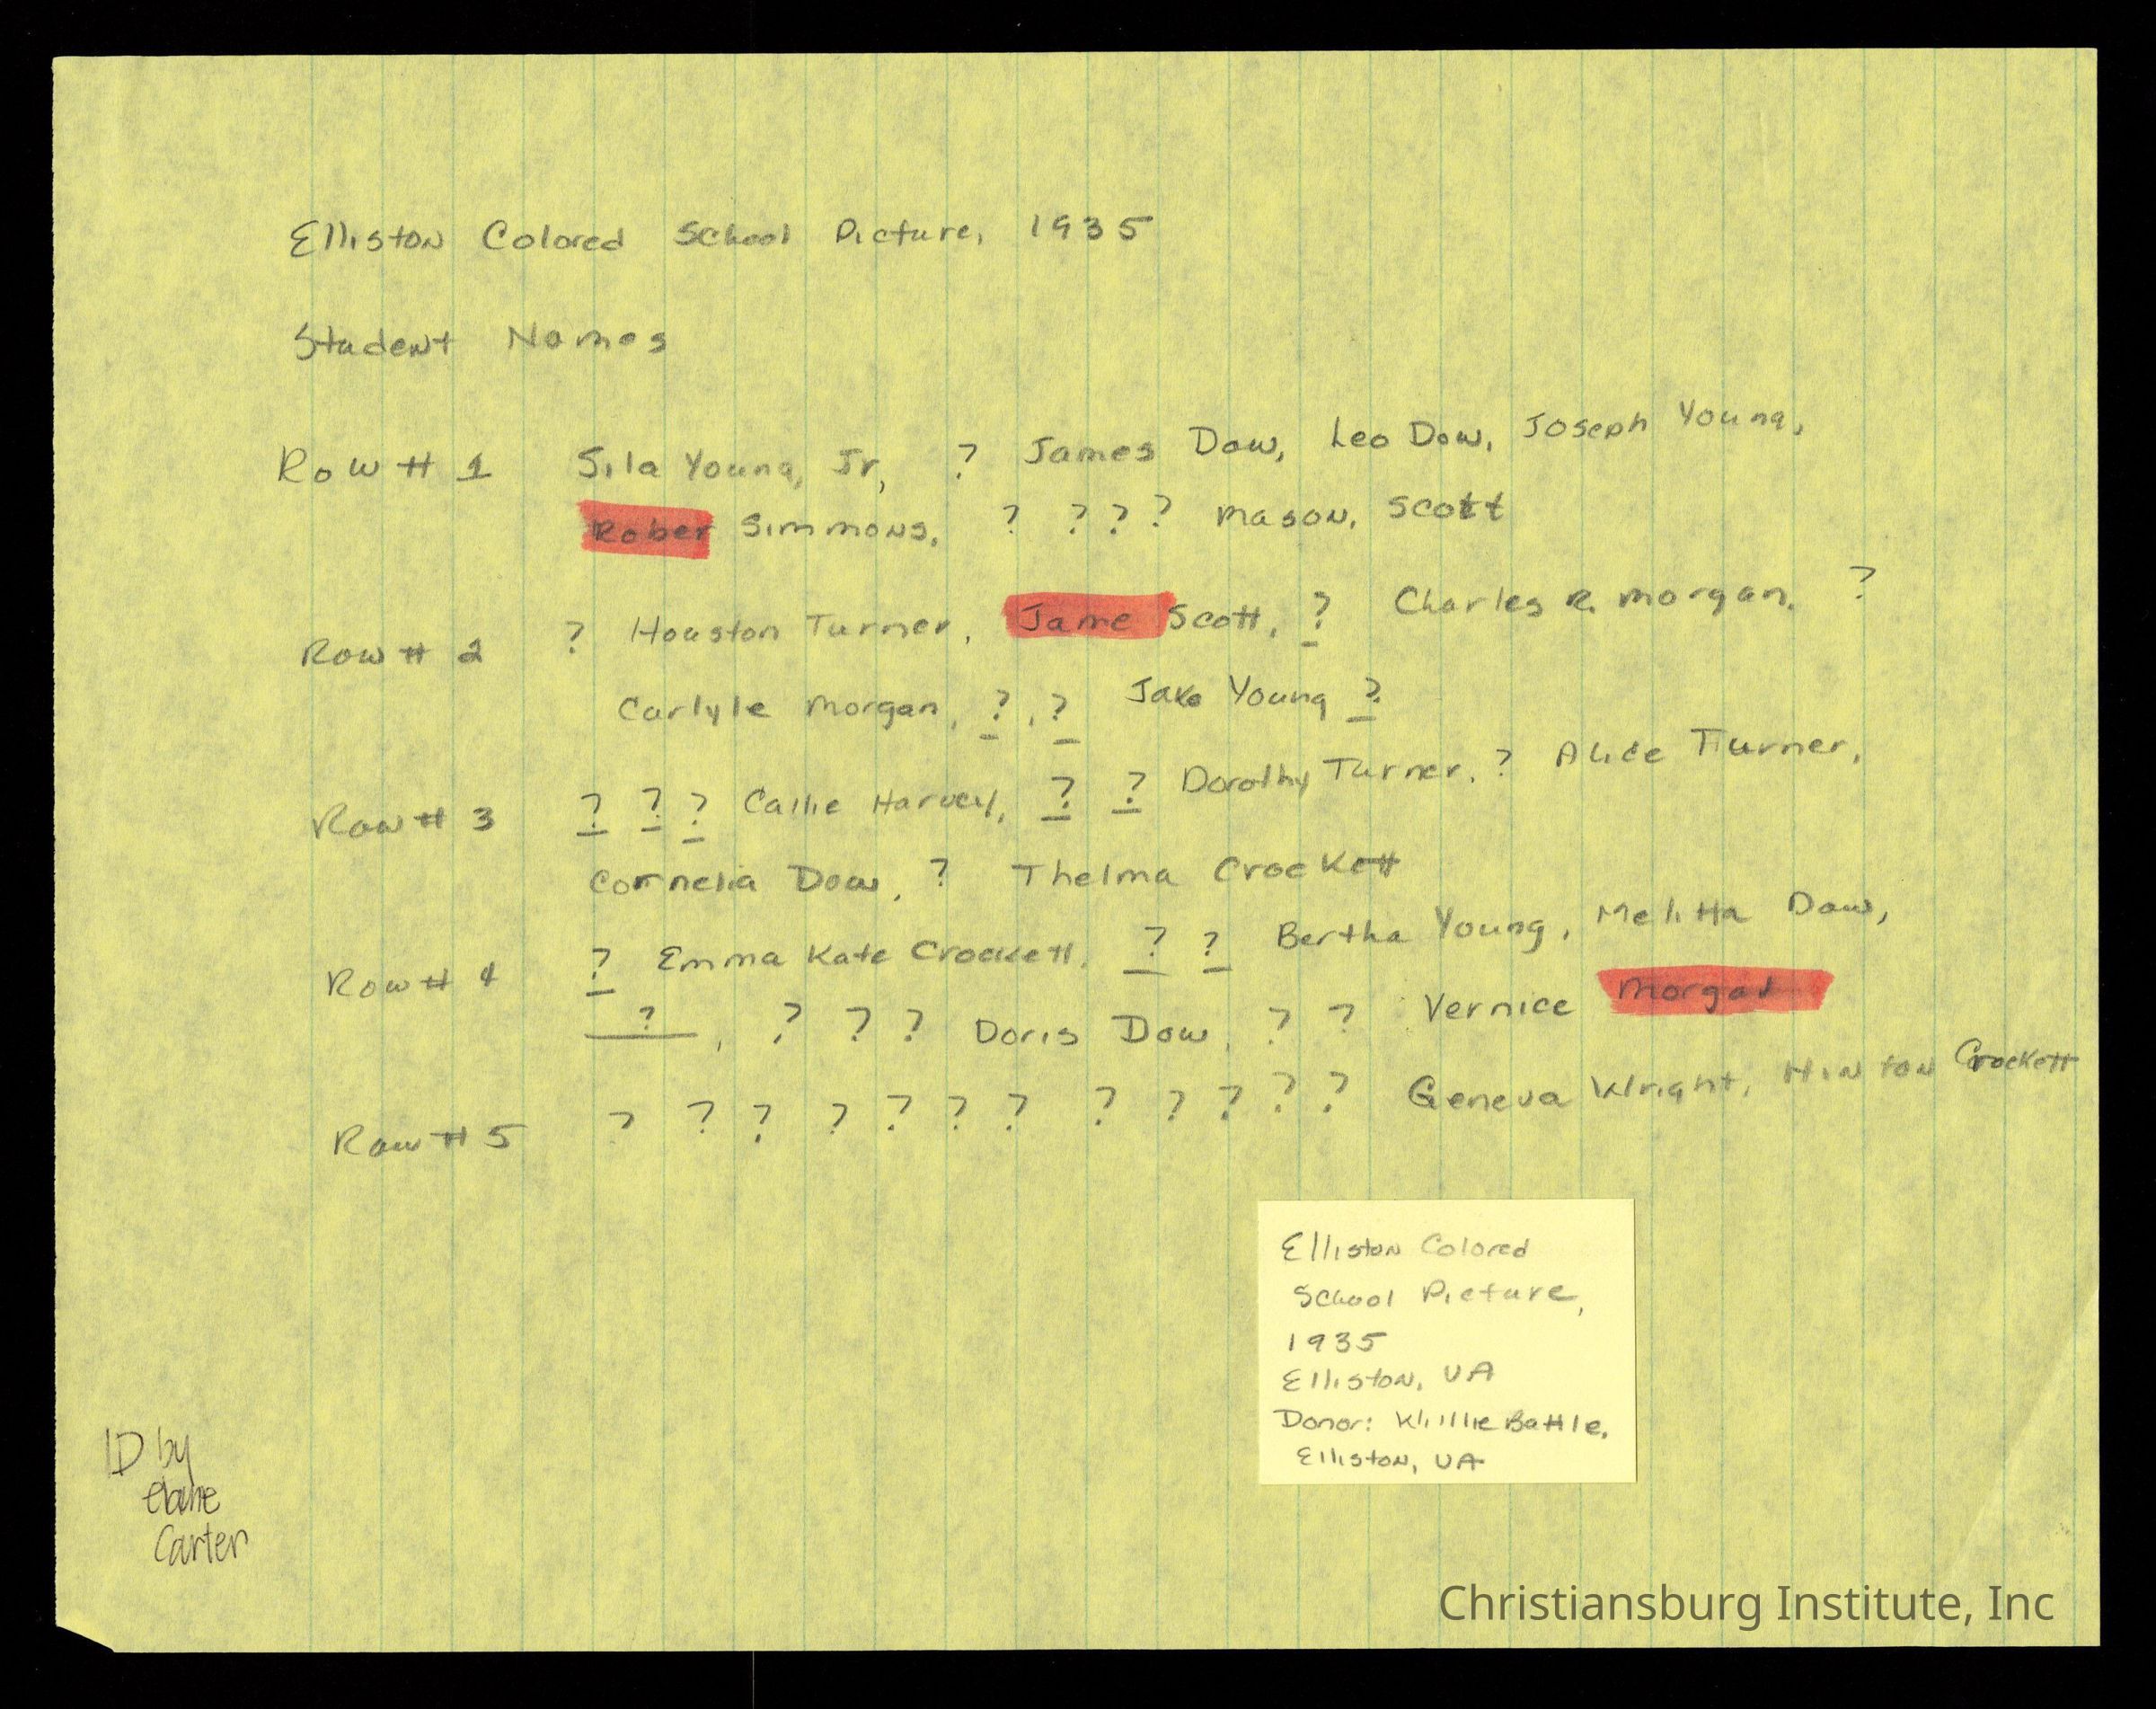 Elliston Colored School Picture, 1935
Student Names
Row # 1 Sila Young, Jr, ? James Dow, Leo Dow, Joseph Young,
Rober Simmons, ? ? ? ? Mason, Scott
Row # 2 ? Houston Turner, Jame Scott, ? Charles R. Morgan, ?
Carlyle Morgan, ?, ? Jake Young ?
Row # 3 ? ? ? Callie Harvey, ? ? Dorothy Turner, ? Alice Turner,
Cornelia Dow, ? Thelma Crockett
Row # 4 ? Emma Kate Crockett, ? ? Bertha Young, Melitta Dow,
?, ? ? ? Doris Dow, ? ? Vernice
Row # 5 ? ? ? ? ? ? ? ? ? ? ? ? Geneva Wright, Hinton Crockett
Elliston Colored
School Picture,
1935
Elliston, VA
Donor: Willie Battle,
Elliston, VA
ID by
elaine
Carter
Christiansburg Institute, Inc